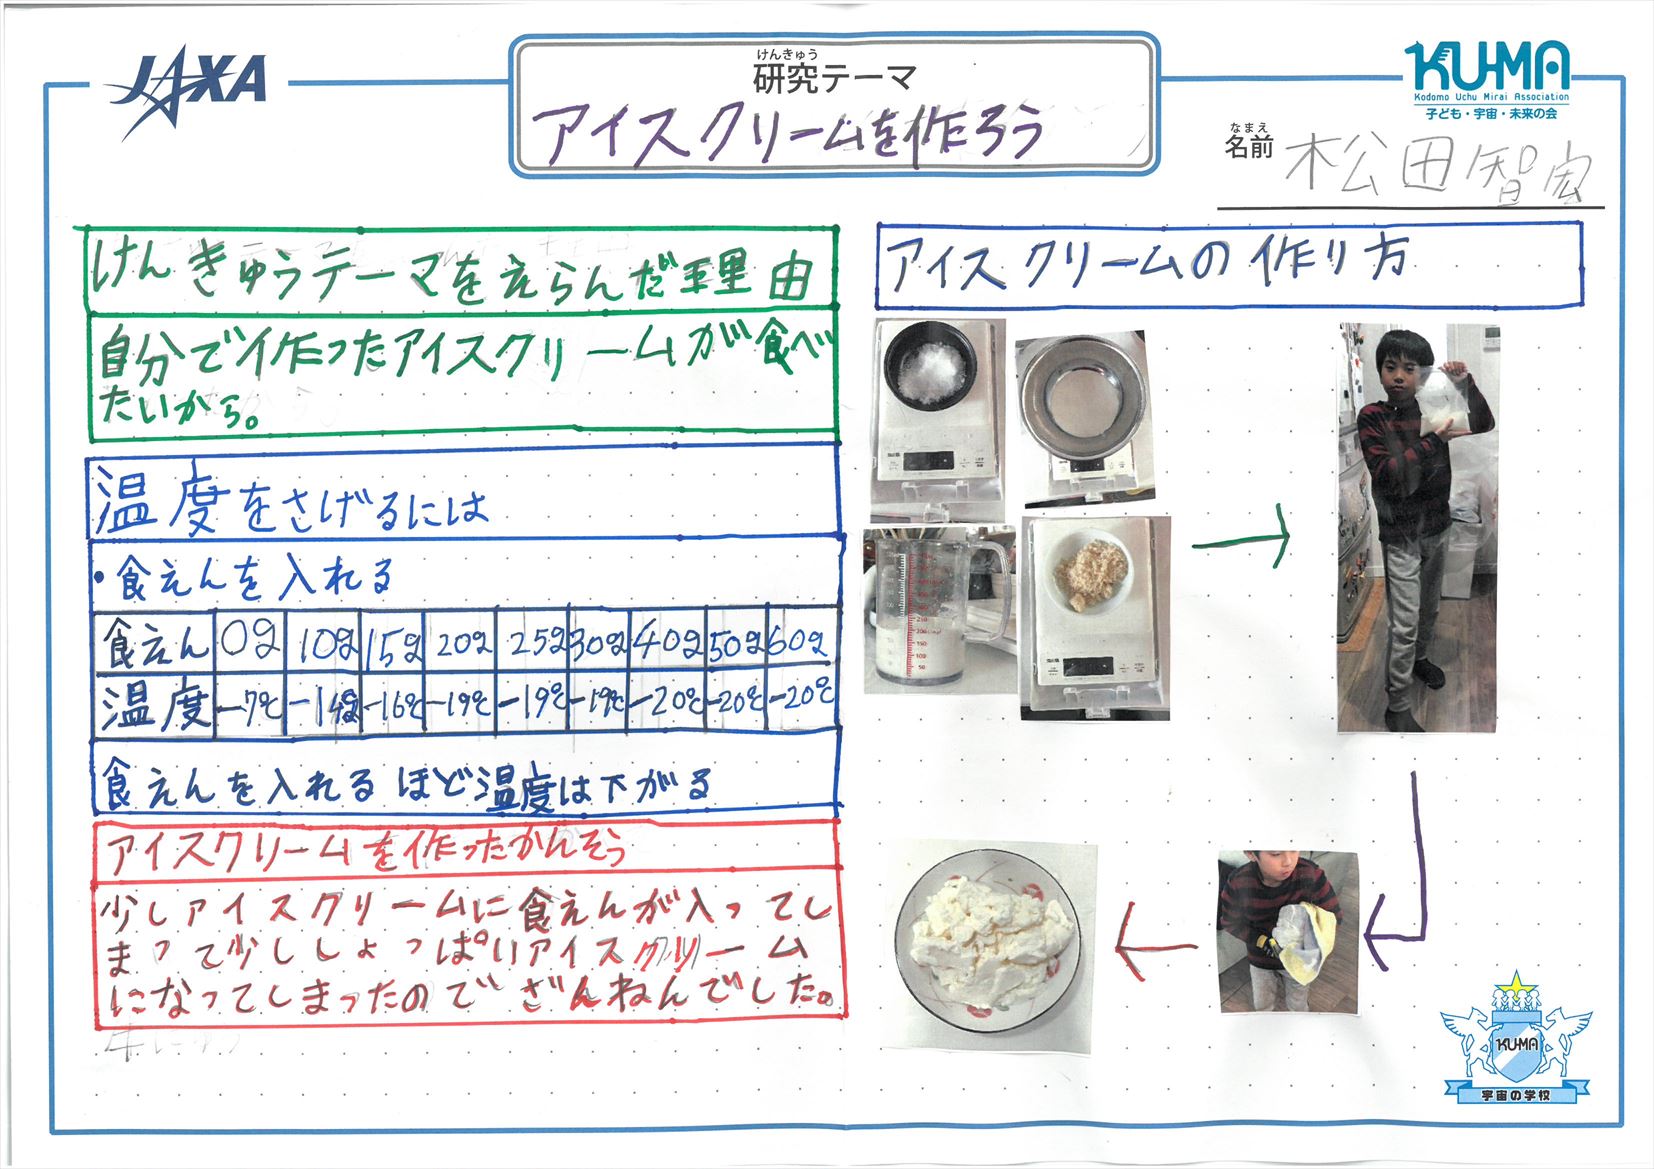 JAXA
けんきゅう
研究テーマ
アイスクリームを作ろう
KU-MA
Kodomo Uchu Mirai Association
子ども・宇宙・未来の会
なまえ
名前 松田智宏
けんきゅうテーマをえらんだ理由
自分で作ったアイスクリームが食べ
たいから。
温度をさげるには
・食えんを入れる
食えん 0g 10g 15g 20g 25g 30g 40g 50g 60g
温度 -7℃ -14℃ -16℃ -19℃ -19℃ -19℃ -20℃ -20℃ -20℃
食えんを入れるほど温度は下がる
アイスクリームを作ったかんそう
少しアイスクリームに食えんが入ってし
まって少ししょっぱいアイスクリーム
になってしまったのでざんねんでした。
アイスクリームの作り方
KU-MA
宇宙の学校